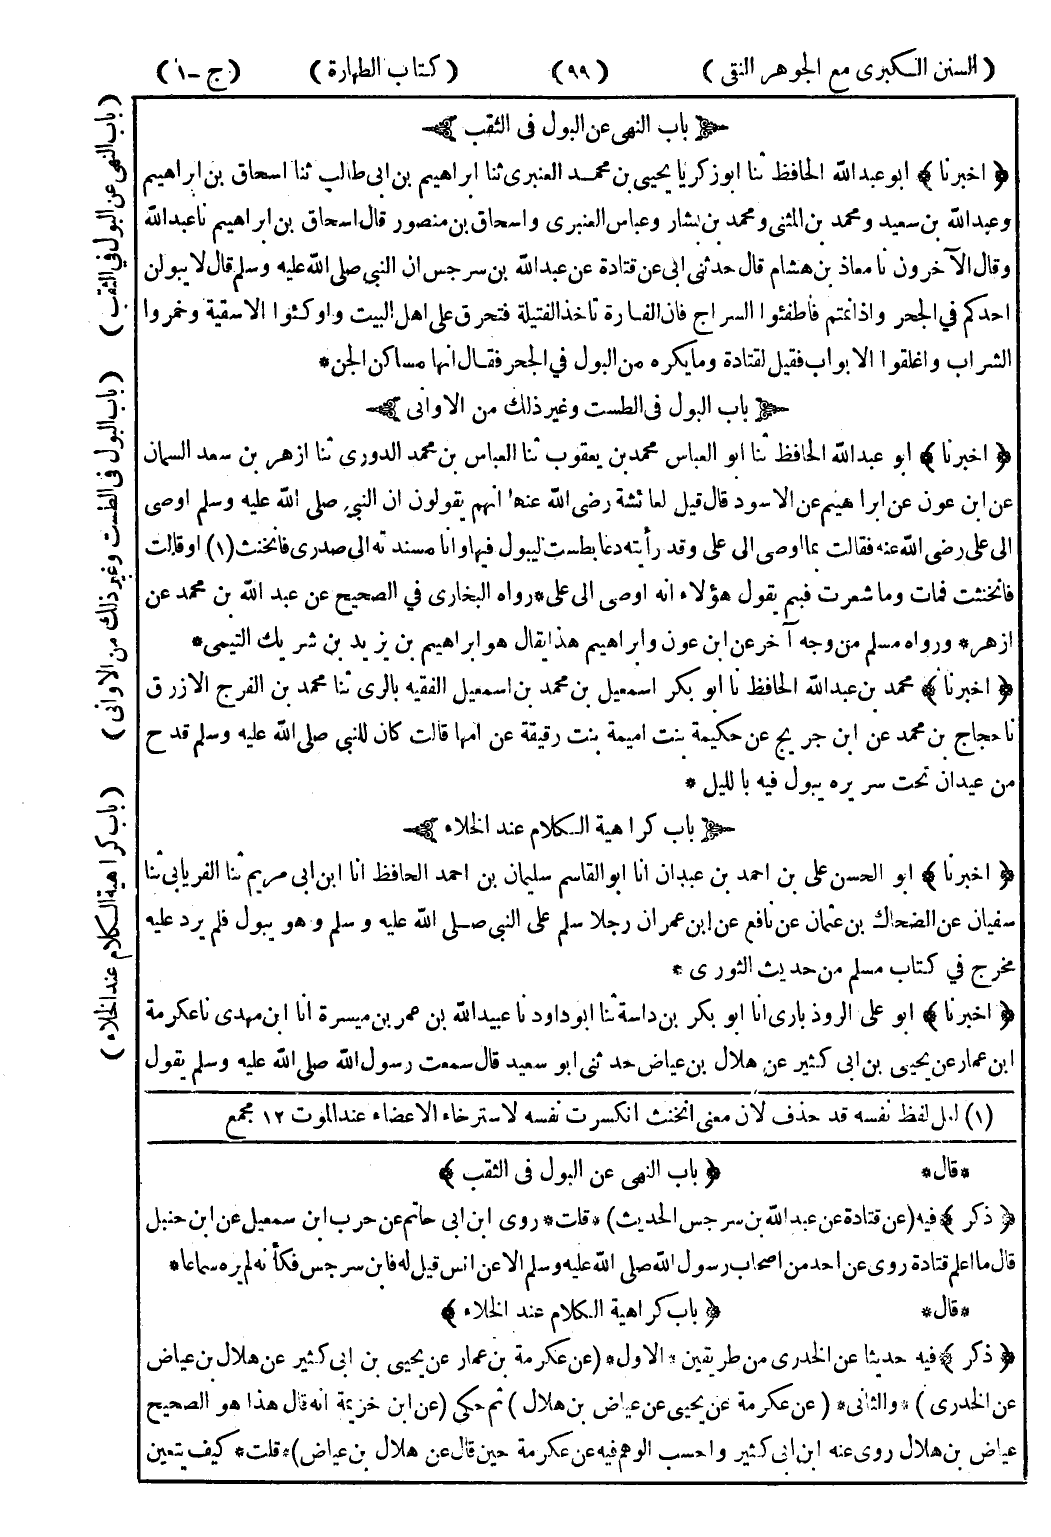 ( السنن الكبرى مع الجوهر النقى ) (٩٩) ( كتاب الطهارة ) ( ج - ١ )
باب النهى عن البول فى الثقب
﴿ اخبرنا ﴾ ابو عبد الله الحافظ ثنا ابو زكريا يحيى بن محمد العنبرى ثنا ابراهيم بن ابى طالب ثنا اسحاق بن ابراهيم
وعبد الله بن سعيد ومحمد بن المثنى ومحمد بن بشار وعباس العنبرى واسحاق بن منصور قال اسحاق بن ابراهيم نا عبد الله
وقال الآخرون نا معاذ بن هشام قال حدثنى ابى عن قتادة عن عبد الله بن سرجس ان النبي صلى الله عليه وسلم قال لا يبولن
احدكم في الجحر واذا نمتم فأطفئوا السراج فان الفارة تاخذ الفتيلة فتحرق على اهل البيت واوكئوا الاسقية وخمروا
الشراب واغلقوا الابواب فقيل لقتادة وما يكره من البول في الجحر فقال انها مساكن الجن*
باب البول فى الطست وغير ذلك من الاوانى
﴿ اخبرنا ﴾ ابو عبد الله الحافظ ثنا ابو العباس محمد بن يعقوب ثنا العباس بن محمد الدورى ثنا ازهر بن سعد السمان
عن ابن عون عن ابراهيم عن الاسود قال قيل لعائشة رضى الله عنها انهم يقولون ان النبي صلى الله عليه وسلم اوصى
الى على رضى الله عنه فقالت بما اوصى الى على وقد رأيته دعا بطست ليبول فيها وانا مسندته الى صدرى فانخنث (١) او قالت
فانخنثت فمات وما شعرت فبم يقول هؤلاء انه اوصى الى على* رواه البخارى في الصحيح عن عبد الله بن محمد عن
ازهر* ورواه مسلم من وجه آخر عن ابن عون وابراهيم هذا يقال هو ابراهيم بن يزيد بن شريك التيمى*
﴿ اخبرنا ﴾ محمد بن عبد الله الحافظ نا ابو بكر اسمعيل بن محمد بن اسمعيل الفقيه بالرى ثنا محمد بن الفرج الازرق
نا حجاج بن محمد عن ابن جريج عن حكيمة بنت اميمة بنت رقيقة عن امها قالت كان للنبي صلى الله عليه وسلم قدح
من عيدان تحت سريره يبول فيه بالليل *
باب كراهية الكلام عند الخلاء
﴿ اخبرنا ﴾ ابو الحسن على بن احمد بن عبدان انا ابو القاسم سليمان بن احمد الحافظ انا ابن ابى مريم ثنا الفريابى ثنا
سفيان عن الضحاك بن عثمان عن نافع عن ابن عمر ان رجلا سلم على النبي صلى الله عليه وسلم وهو يبول فلم يرد عليه
مخرج في كتاب مسلم من حديث الثورى *
﴿ اخبرنا ﴾ ابو على الروذبارى انا ابو بكر بن داسة ثنا ابو داود نا عبيد الله بن عمر بن ميسرة انا ابن مهدى نا عكرمة
ابن عمار عن يحيى بن ابى كثير عن هلال بن عياض حدثنى ابو سعيد قال سمعت رسول الله صلى الله عليه وسلم يقول
(١) لعل لفظ نفسه قد حذف لان معنى انخنث انكسرت نفسه لاسترخاء الاعضاء عند الموت ١٢ مجمع
*قال* ﴿ باب النهى عن البول فى الثقب ﴾
﴿ ذكر ﴾ فيه (عن قتادة عن عبد الله بن سرجس الحديث) *قلت* روى ابن ابى حاتم عن حرب ابن سمعيل عن ابن حنبل
قال ما اعلم قتادة روى عن احد من اصحاب رسول الله صلى الله عليه وسلم الا عن انس قيل له فابن سرجس فكأنه لم يره سماعا*
*قال* ﴿ باب كراهية الكلام عند الخلاء ﴾
﴿ ذكر ﴾ فيه حديثا عن الخدرى من طريقين *الاول* (عن عكرمة بن عمار عن يحيى بن ابى كثير عن هلال بن عياض
عن الخدرى ) *والثانى* ( عن عكرمة عن يحيى عن عياض بن هلال ) ثم حكى (عن ابن خزيمة انه قال هذا هو الصحيح
عياض بن هلال روى عنه ابن ابى كثير واحسب الوهم فيه عن عكرمة حين قال عن هلال بن عياض) *قلت* كيف يتعين
( باب النهى عن البول في الثقب )
( باب البول فى الطست وغير ذلك من الاوانى )
( باب كراهية الكلام عند الخلاء )